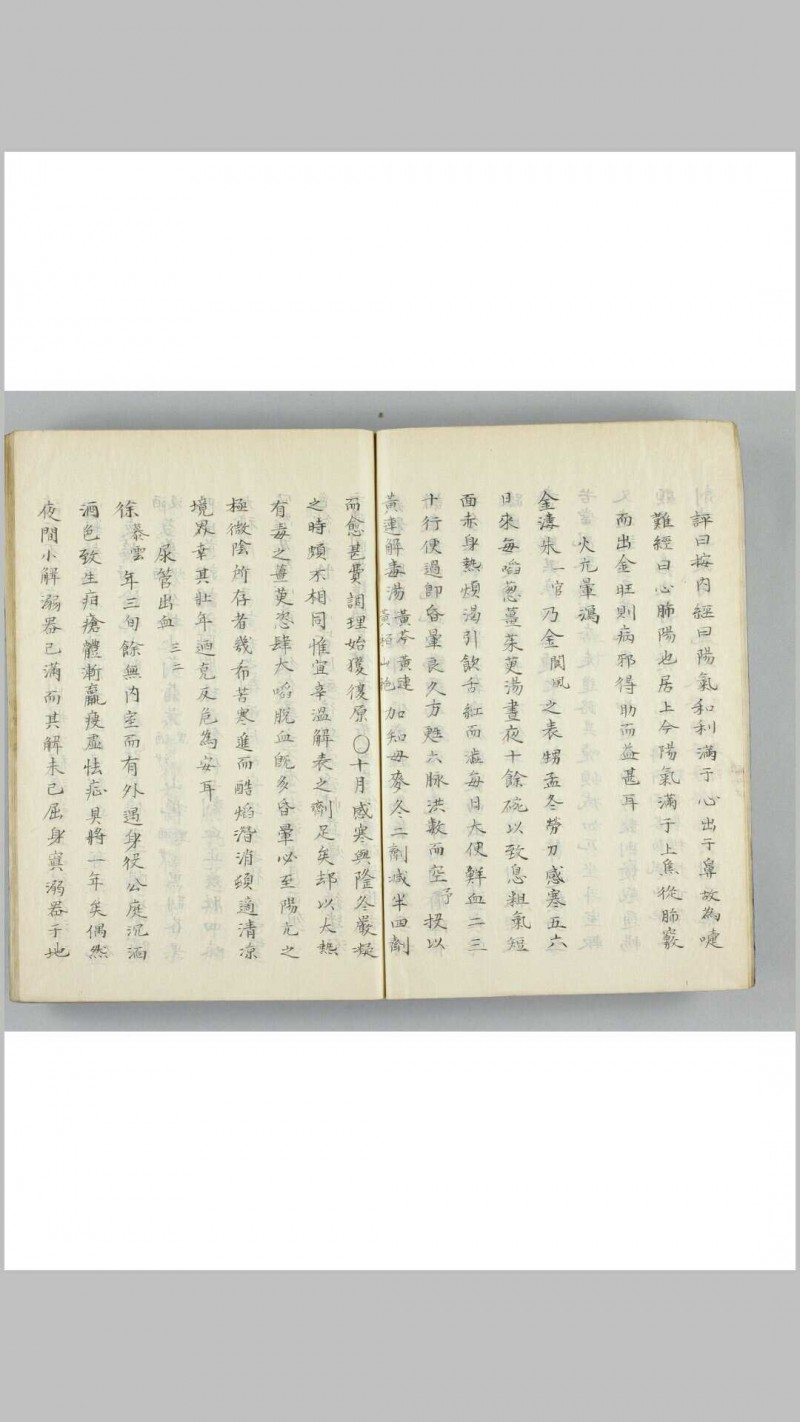 評曰按內經曰陽氣和利滿于心出于鼻故為嚏
難經曰心肺陽也居上今陽氣滿于上焦從肺竅
而出金旺則病邪得助而益甚耳
火亢暈瀉
金淒朱一官乃金閶風之表甥孟冬勞力感寒五六
日來每啗蔥薑茱萸湯晝夜十餘碗以致息粗氣短
面赤身熱煩渴引飲舌紅而澁每日大便鮮血二三
十行便過卽昏暈良久方甦六脉洪數而空予投以
黃連解毒湯黃芩黃連黃栢山梔加知母麥冬二劑減半四劑
而愈甚費調理始獲復原〇十月感寒與隆冬嚴凝
之時頗不相同惟宜辛溫解表之劑足矣却以大熱
有毒之薑萸恣肆大啗脫血旣多昏暈必至陽亢之
極微陰所存者幾布苦寒進而酷焰潛消須適清凉
境界幸其壯年廼克反危為安耳
尿管出血 三二
徐慕雲年三旬餘無內室而有外遇身從公庭沉湎
酒色致生疳瘡體漸羸瘦虛怯症具將一年矣偶然
夜間小解溺器已滿而其解未已屈身寘溺器于地